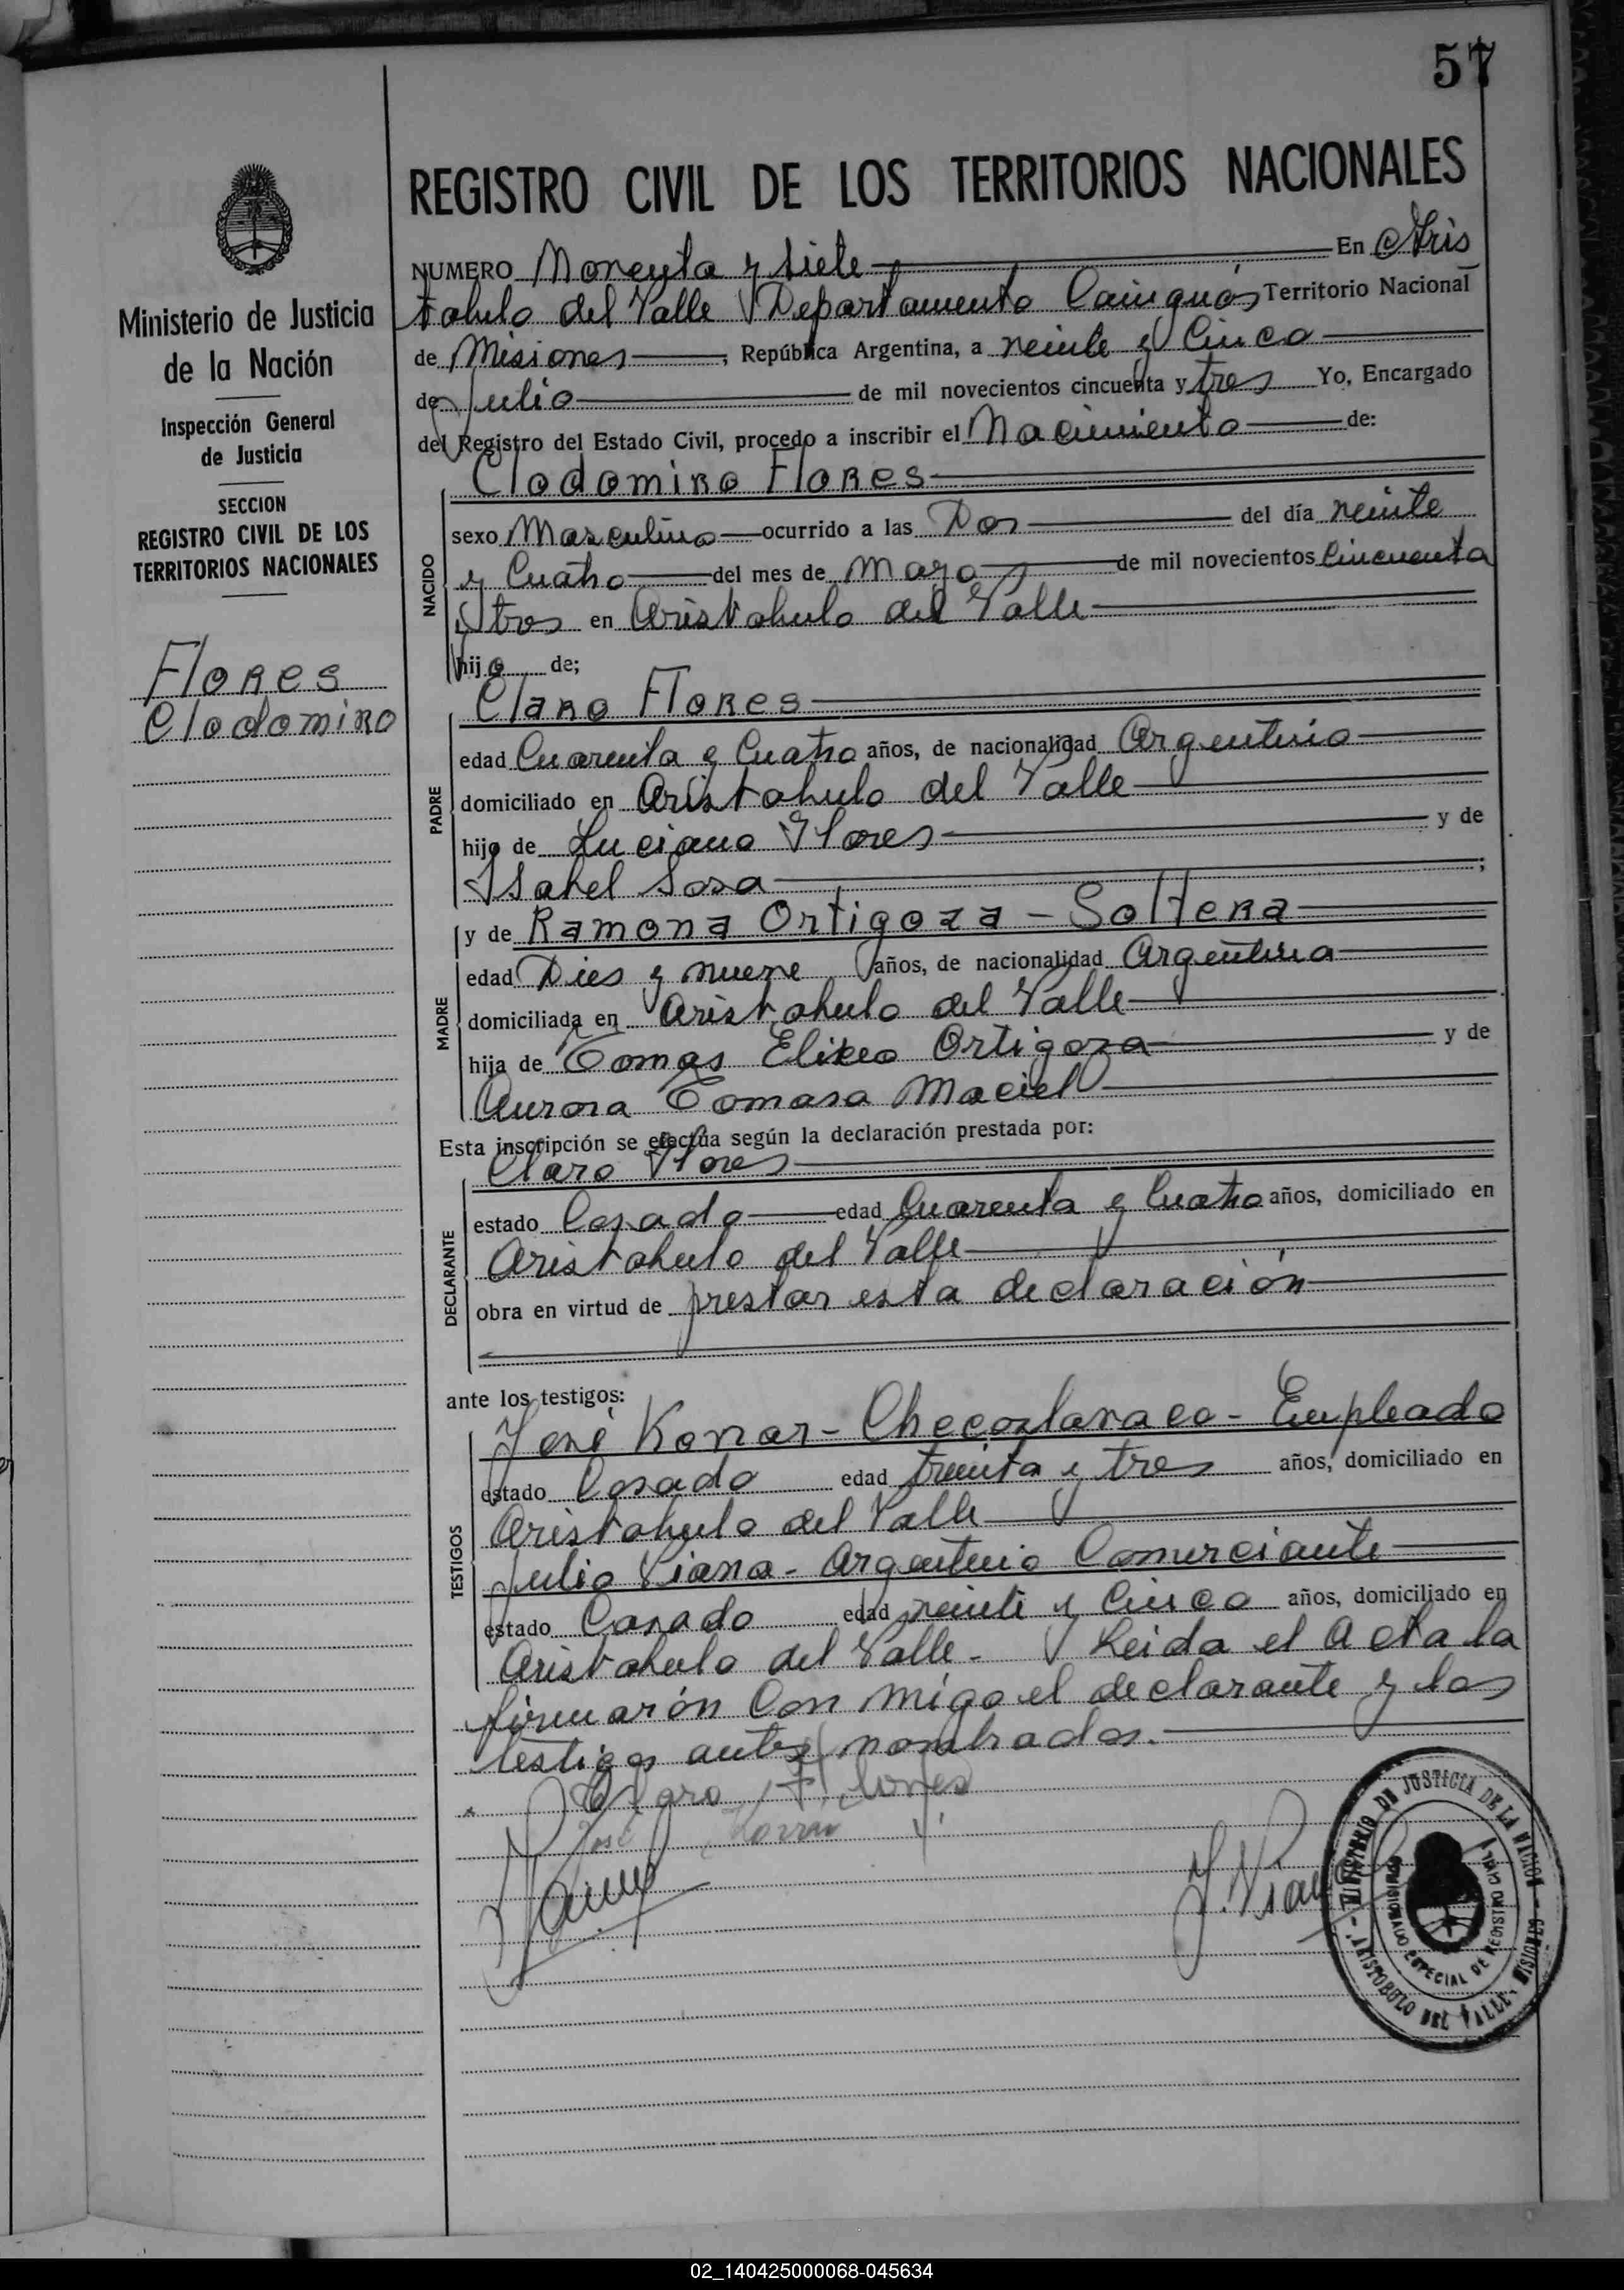 57
REGISTRO CIVIL DE LOS TERRITORIOS NACIONALES
Ministerio de Justicia
de la Nación
Inspección General
de Justicia
SECCION
REGISTRO CIVIL DE LOS
TERRITORIOS NACIONALES
Flores
Clodomiro
NUMERO Noventa y siete En Aris
tobulo del Valle Departamento Cainguás Territorio Nacional
de Misiones, República Argentina, a veinte y Cinco
de Julio de mil novecientos cincuenta y tres Yo, Encargado
del Registro del Estado Civil, procedo a inscribir el Nacimiento de:
NACIDO
Clodomiro Flores
sexo Masculino ocurrido a las Dos del día veinte
y Cuatro del mes de Mayo de mil novecientos Cincuenta
y tres en Aristobulo del Valle
hijo de;
PADRE
Claro Flores
edad Cuarenta y Cuatro años, de nacionalidad Argentino
domiciliado en Aristobulo del Valle
hijo de Luciano Flores y de
Isabel Sosa;
MADRE
y de Ramona Ortigoza - Soltera
edad Dies y nueve años, de nacionalidad Argentina
domiciliada en Aristobulo del Valle
hija de Tomas Eliseo Ortigoza y de
Aurora Tomasa Maciel
Esta inscripción se efectúa según la declaración prestada por:
DECLARANTE
Claro Flores
estado Casado edad Cuarenta y Cuatro años, domiciliado en
Aristobulo del Valle
obra en virtud de prestar esta declaración
ante los testigos:
TESTIGOS
José Konar - Checoslavaco - Empleado
estado Casado edad treinta y tres años, domiciliado en
Aristobulo del Valle
Julio Viana - Argentino Comerciante
estado Casado edad veinte y Cinco años, domiciliado en
Aristobulo del Valle - Leida el Acta la
firmarón Con migo el declarante y los
testigos antes nombrados.
Claro Flores
José
J. Viana
MINISTERIO DE JUSTICIA DE LA NACION - ARISTOBULO DEL VALLE, MISIONES -
ESPECIAL DE REGISTRO CIVIL
02_140425000068-045634